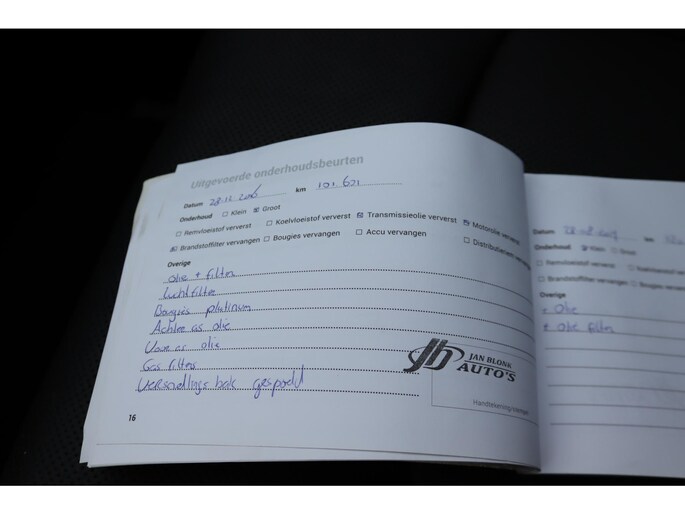 Uitgevoerde onderhoudsbeurten
Datum 28-12-2016 km 101.601
Onderhoud Klein Groot
Remvloeistof ververst Koelvloeistof ververst Transmissieolie ververst Motorolie ververst
Brandstoffilter vervangen Bougies vervangen Accu vervangen
Overige
olie + filter
luchtfilter
Bougies platinum
Achter as olie
Voor as olie
Gas filters
Versnellings bak gespoeld
JB JAN BLONK
AUTO'S
Handtekening/stempel
16
Datum km
Onderhoud Klein Groot
Remvloeistof ververst
Brandstoffilter vervangen
Overige
+ olie
+ olie filter